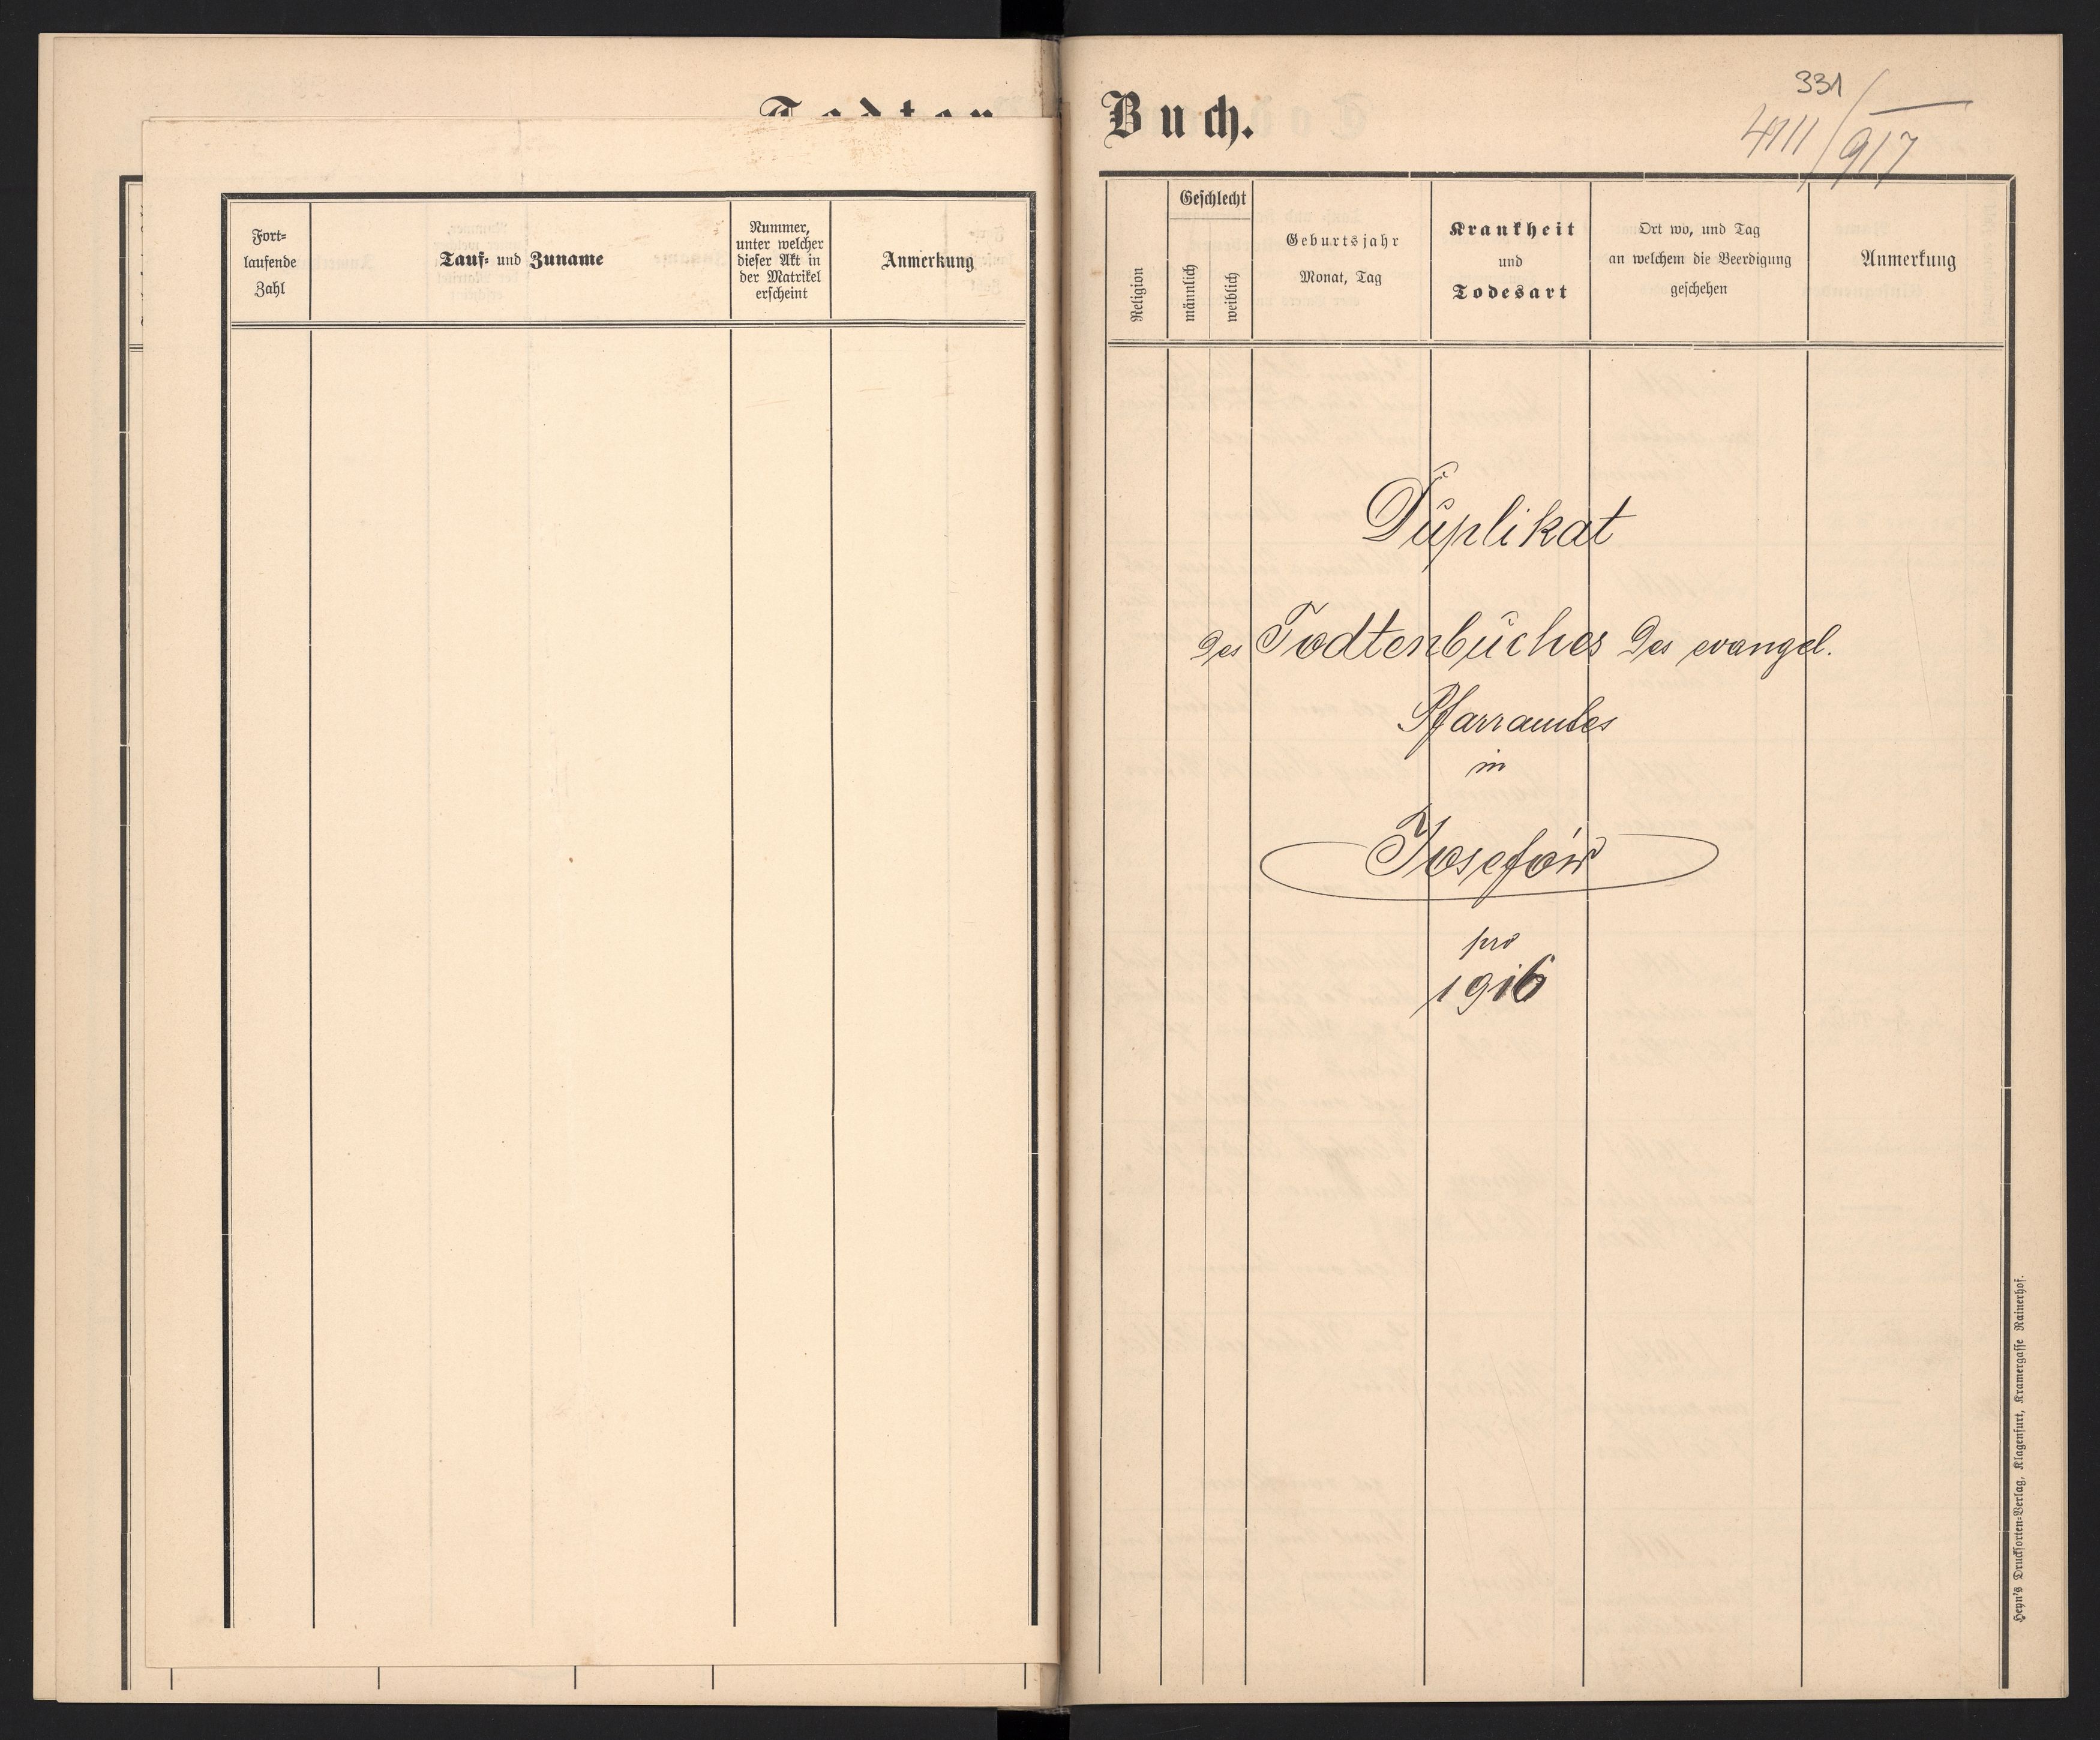 Todten
Fort=
laufende
Zahl
Tauf= und Zuname
Nummer,
unter welcher
dieser Akt in
der Matrikel
erscheint
Anmerkung
Buch.
331
4111/917
Religion
Geschlecht
männlich
weiblich
Geburtsjahr
Monat, Tag
Krankheit
und
Todesart
Ort wo, und Tag
an welchem die Beerdigung
geschehen
Anmerkung
Duplikat
des Todtenbuches des evangel.
Pfarramtes
in
Josefów
pro
1916
Heyn's Drucksorten=Verlag, Klagenfurt, Kramergasse Rainerhof.